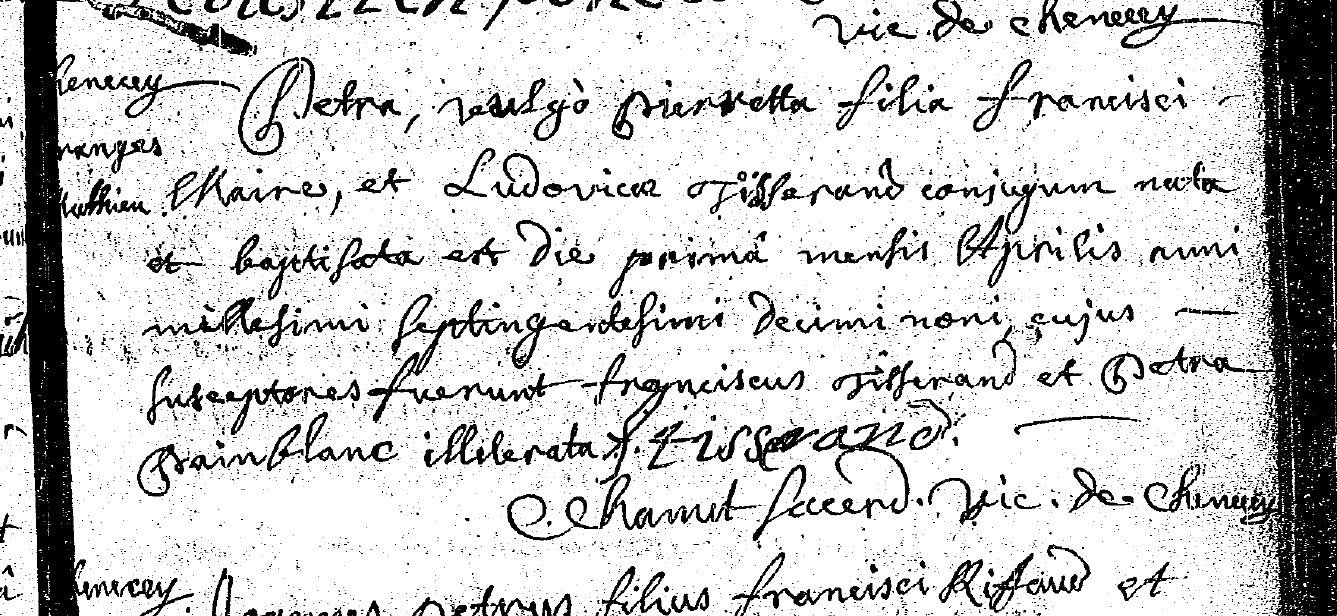 vic. de chenecey
henecey
Petra, vulgò pierretta filia francisci
ranges
Maire, et Ludovicæ Tisserand conjugum nata
et baptisata est die primâ mensis Aprilis anni
millesimi septingentesimi decimi noni, cujus
susceptores fuerunt franciscus Tisserand et Petra
painblanc illiterata f. tisserand.
C. Chamut sacerd. vic. de Chenecey
henecey
petrus filius francisci Riffaud et